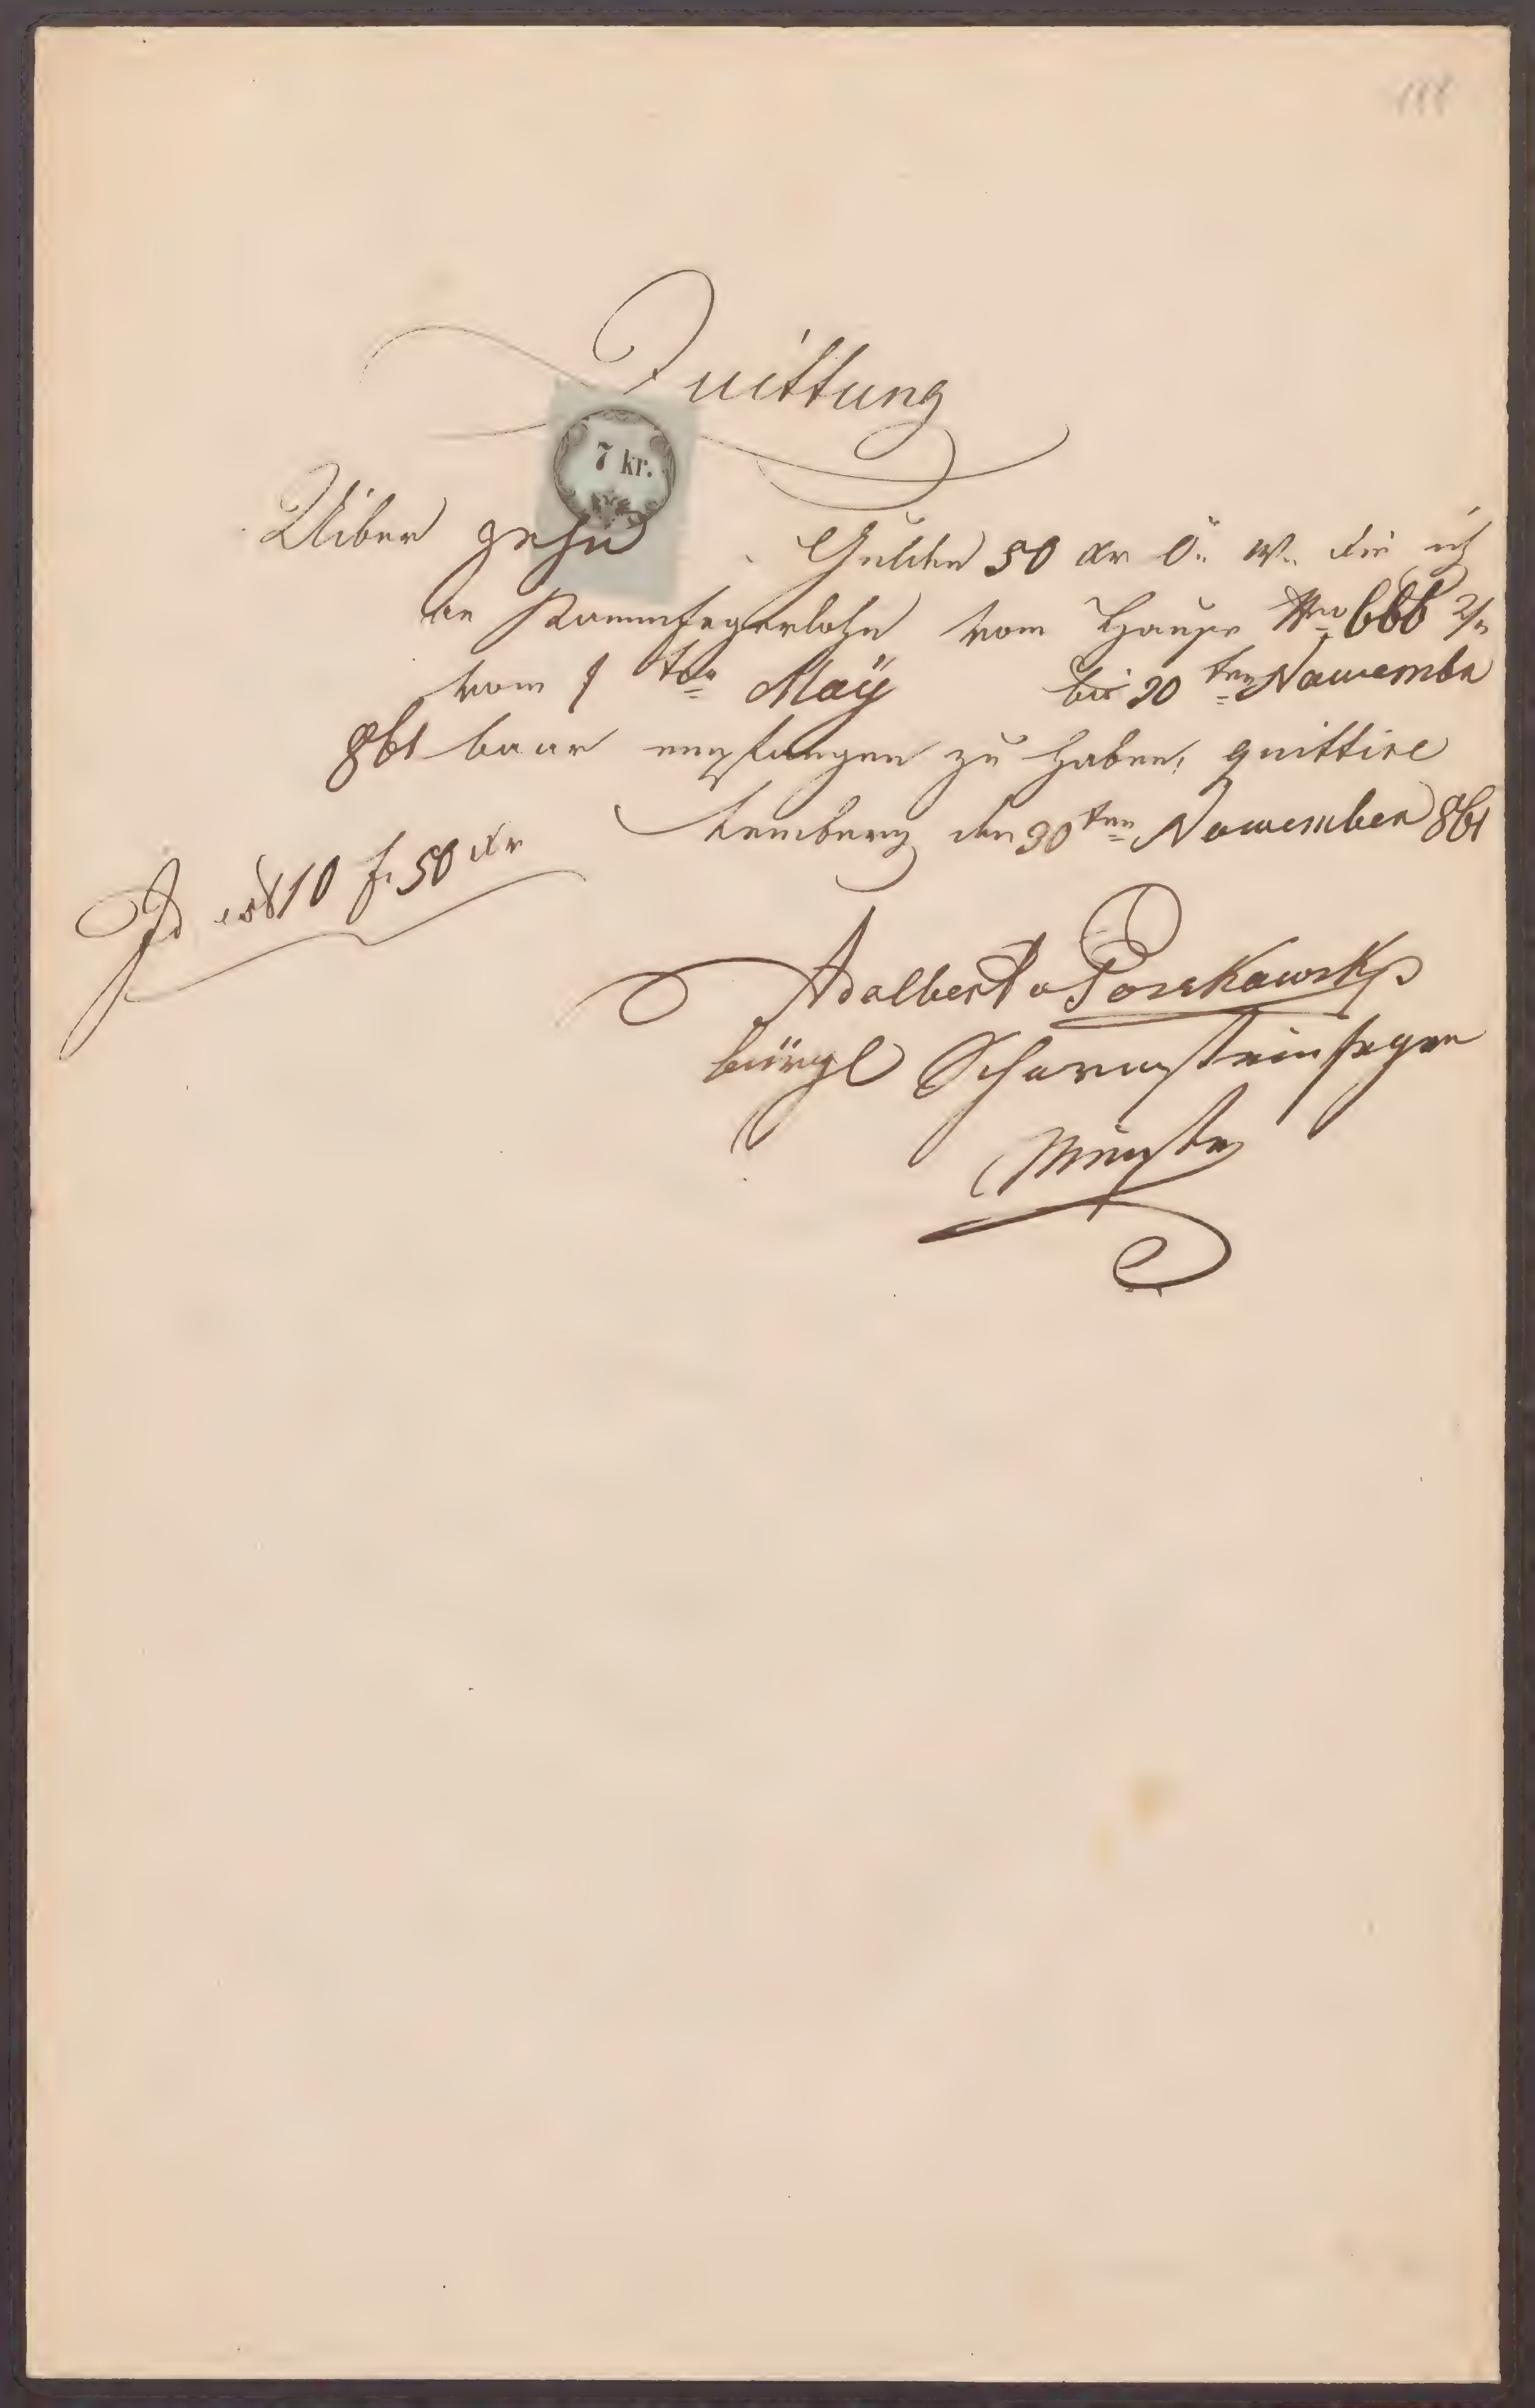 188
Quittung
7 kr.
Uiber zehn Gulden 50 xr Ö. W. die ich
an Raumfegerlohn vom Hause Nro 666 2/4
vom 1 ten Maÿ bis 30 ten Nowember
861 baar empfangen zu haben, quittire
Lemberg den 30 ten Nowember 861
Id est 10 f. 50 xr
Adalbert
bürgl Schornsteinfeger
Meister